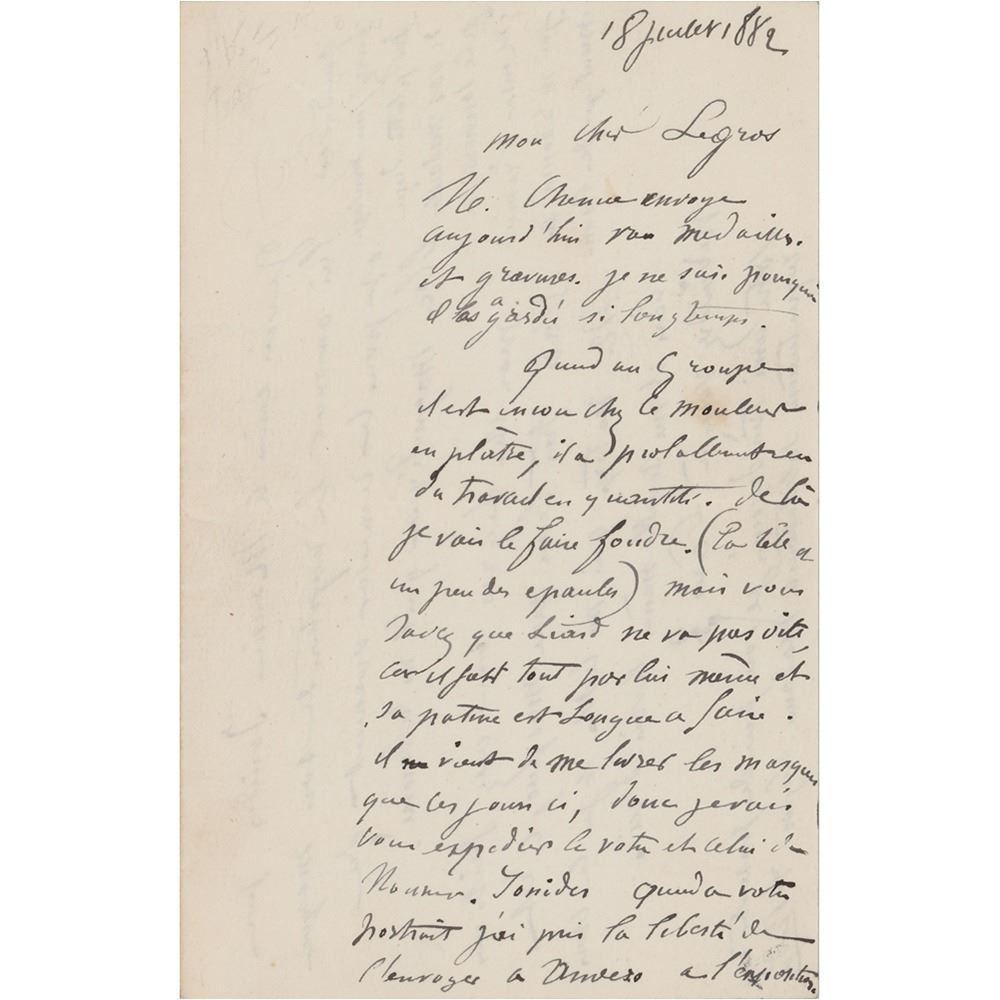 18 juillet 1882
mon cher Legros
M. envoye
aujourd'hui vos medailles.
et gravures. je ne sais pourquoi
il les a gardés si longtemps.
Quand au Groupe
il est encore chez le mouleur
en plâtre, il a probablement eu
du travail en quantité. de là
je vais le faire fondre. (la tête et
un peu des epaules) mais vous
savez que Liard ne va pas vite,
car il fait tout par lui même et
sa patine est longue a faire.
il vient de me livrer les masques
que ces jours ci, donc je vais
vous expedier le votre et celui de
Ionides quand a votre
portrait j'ai pris la liberté de
l'envoyer a Anvers a l'exposition.